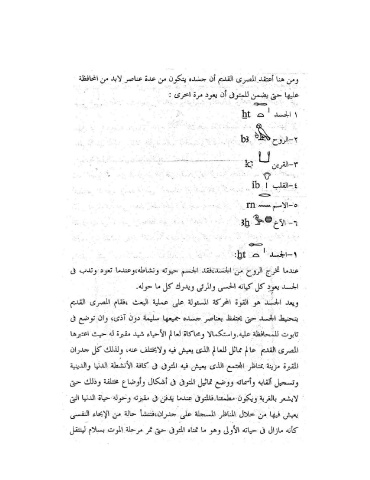 ومن هنا أعتقد المصرى القديم أن جسده يتكون من عدة عناصر لابد من المحافظة
عليها حتى يضمن للمتوفى أن يعود مرة اخرى :
١ الجسد ht
٢-الروح b3
٣-القرين
٤-القلب ib
٥-الاسم rn
٦- الأخ 3h
١-الجسد ht:
عندما تخرج الروح من الجسد،فقد الجسم حيوته ونشاطه،وعندما تعود وتدب فى
الجسد يعود كل كيانه الحسى والمرئى ويدرك كل ما حوله.
ويعد الجسد هو القوة المحركة المسئولة على عملية البعث ،فقام المصرى القديم
بتحنيط الجسد حتى يحتفظ بعناصر جسده جميعها سليمة دون آذى، وان توضع فى
تابوت للمحافظة عليه.واستكمالا ومحاكاة لعالم الأحياء شيد مقبرة له حيث اعتبرها
المصرى القديم عالم مماثل للعالم الذى يعيش فيه ولايختلف عنه، ولذلك كل جدران
المقبرة مزينة بمناظر المجتمع الذى يعيش فيه المتوفى فى كافة الأنشطة الدنيا والدينية
وتسجيل ألقابه وأسمائه ووضع تماثيل المتوفى فى أشكال وأوضاع مختلفة وذلك حتى
لايشعر بالغربة ويكون مطمئنا.فالمتوفى عندما يدفن فى مقبرته وحوله حياة الدنيا التى
يعيش فيها من خلال المناظر المسجلة على جدران،فتنشأ حالة من الإيحاء النفسى
كأنه مازال فى حياته الأولى وهو ما تمناه المتوفى حتى تمر مرحلة الموت بسلام لينتقل